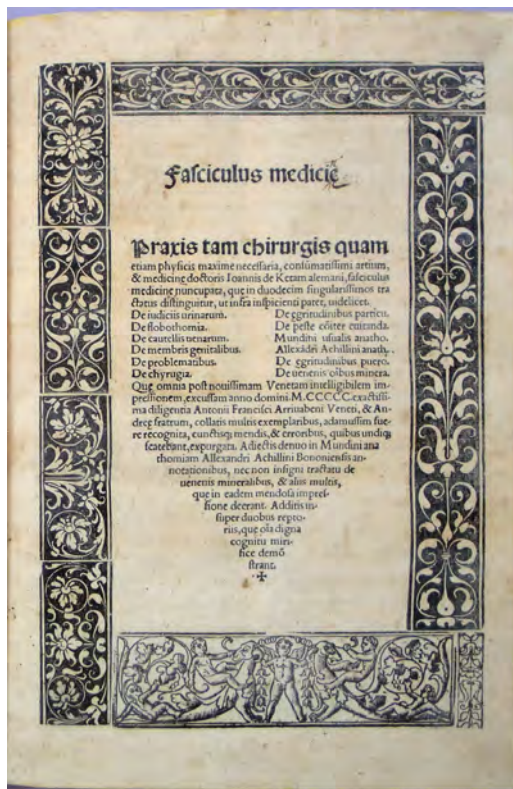 Fasciculus medicie
Praxis tam chirurgis quam
etiam physicis maxime necessaria, consumatissimi artium,
& medicinę doctoris Ioannis de Ketam alemani, fasciculus
medicinę nuncupata, quę in duodecim singularissimos tra
ctatus distinguitur, ut infra inspicienti patet, uidelicet.
De iudiciis urinarum.
De flobothomia.
De cautellis uenarum.
De membris genitalibus.
De problematibus.
De chyrugia.
De ęgritudinibus particu.
De peste cōiter euitanda.
Mundini usualis anatho.
Allexādri Achillini anath.
De ęgritudinibus puero.
De uenenis oībus minera.
Quę omnia post nouissimam Venetam intelligibilem im-
pressionem, excussam anno domini M.CCCCC. exactissi-
ma diligentia Antonii Francisci Arriuabeni Veneti, & An-
dreę fratrum, collatis multis exemplaribus, adamussim fue-
re recognita, cunctisq; mendis, & erroribus, quibus undiq;
scatebant, expurgata. Adiectis denuo in Mundini ana
thomiam Allexandri Achillini Bononiensis an-
notationibus, nec non insigni tractatu de
uenenis mineralibus, & aliis multis,
que in eadem mendosa impres-
sione deerant. Additis in-
super duobus repto-
riis, que oīa digna
cognitu miri-
fice demō
strant.